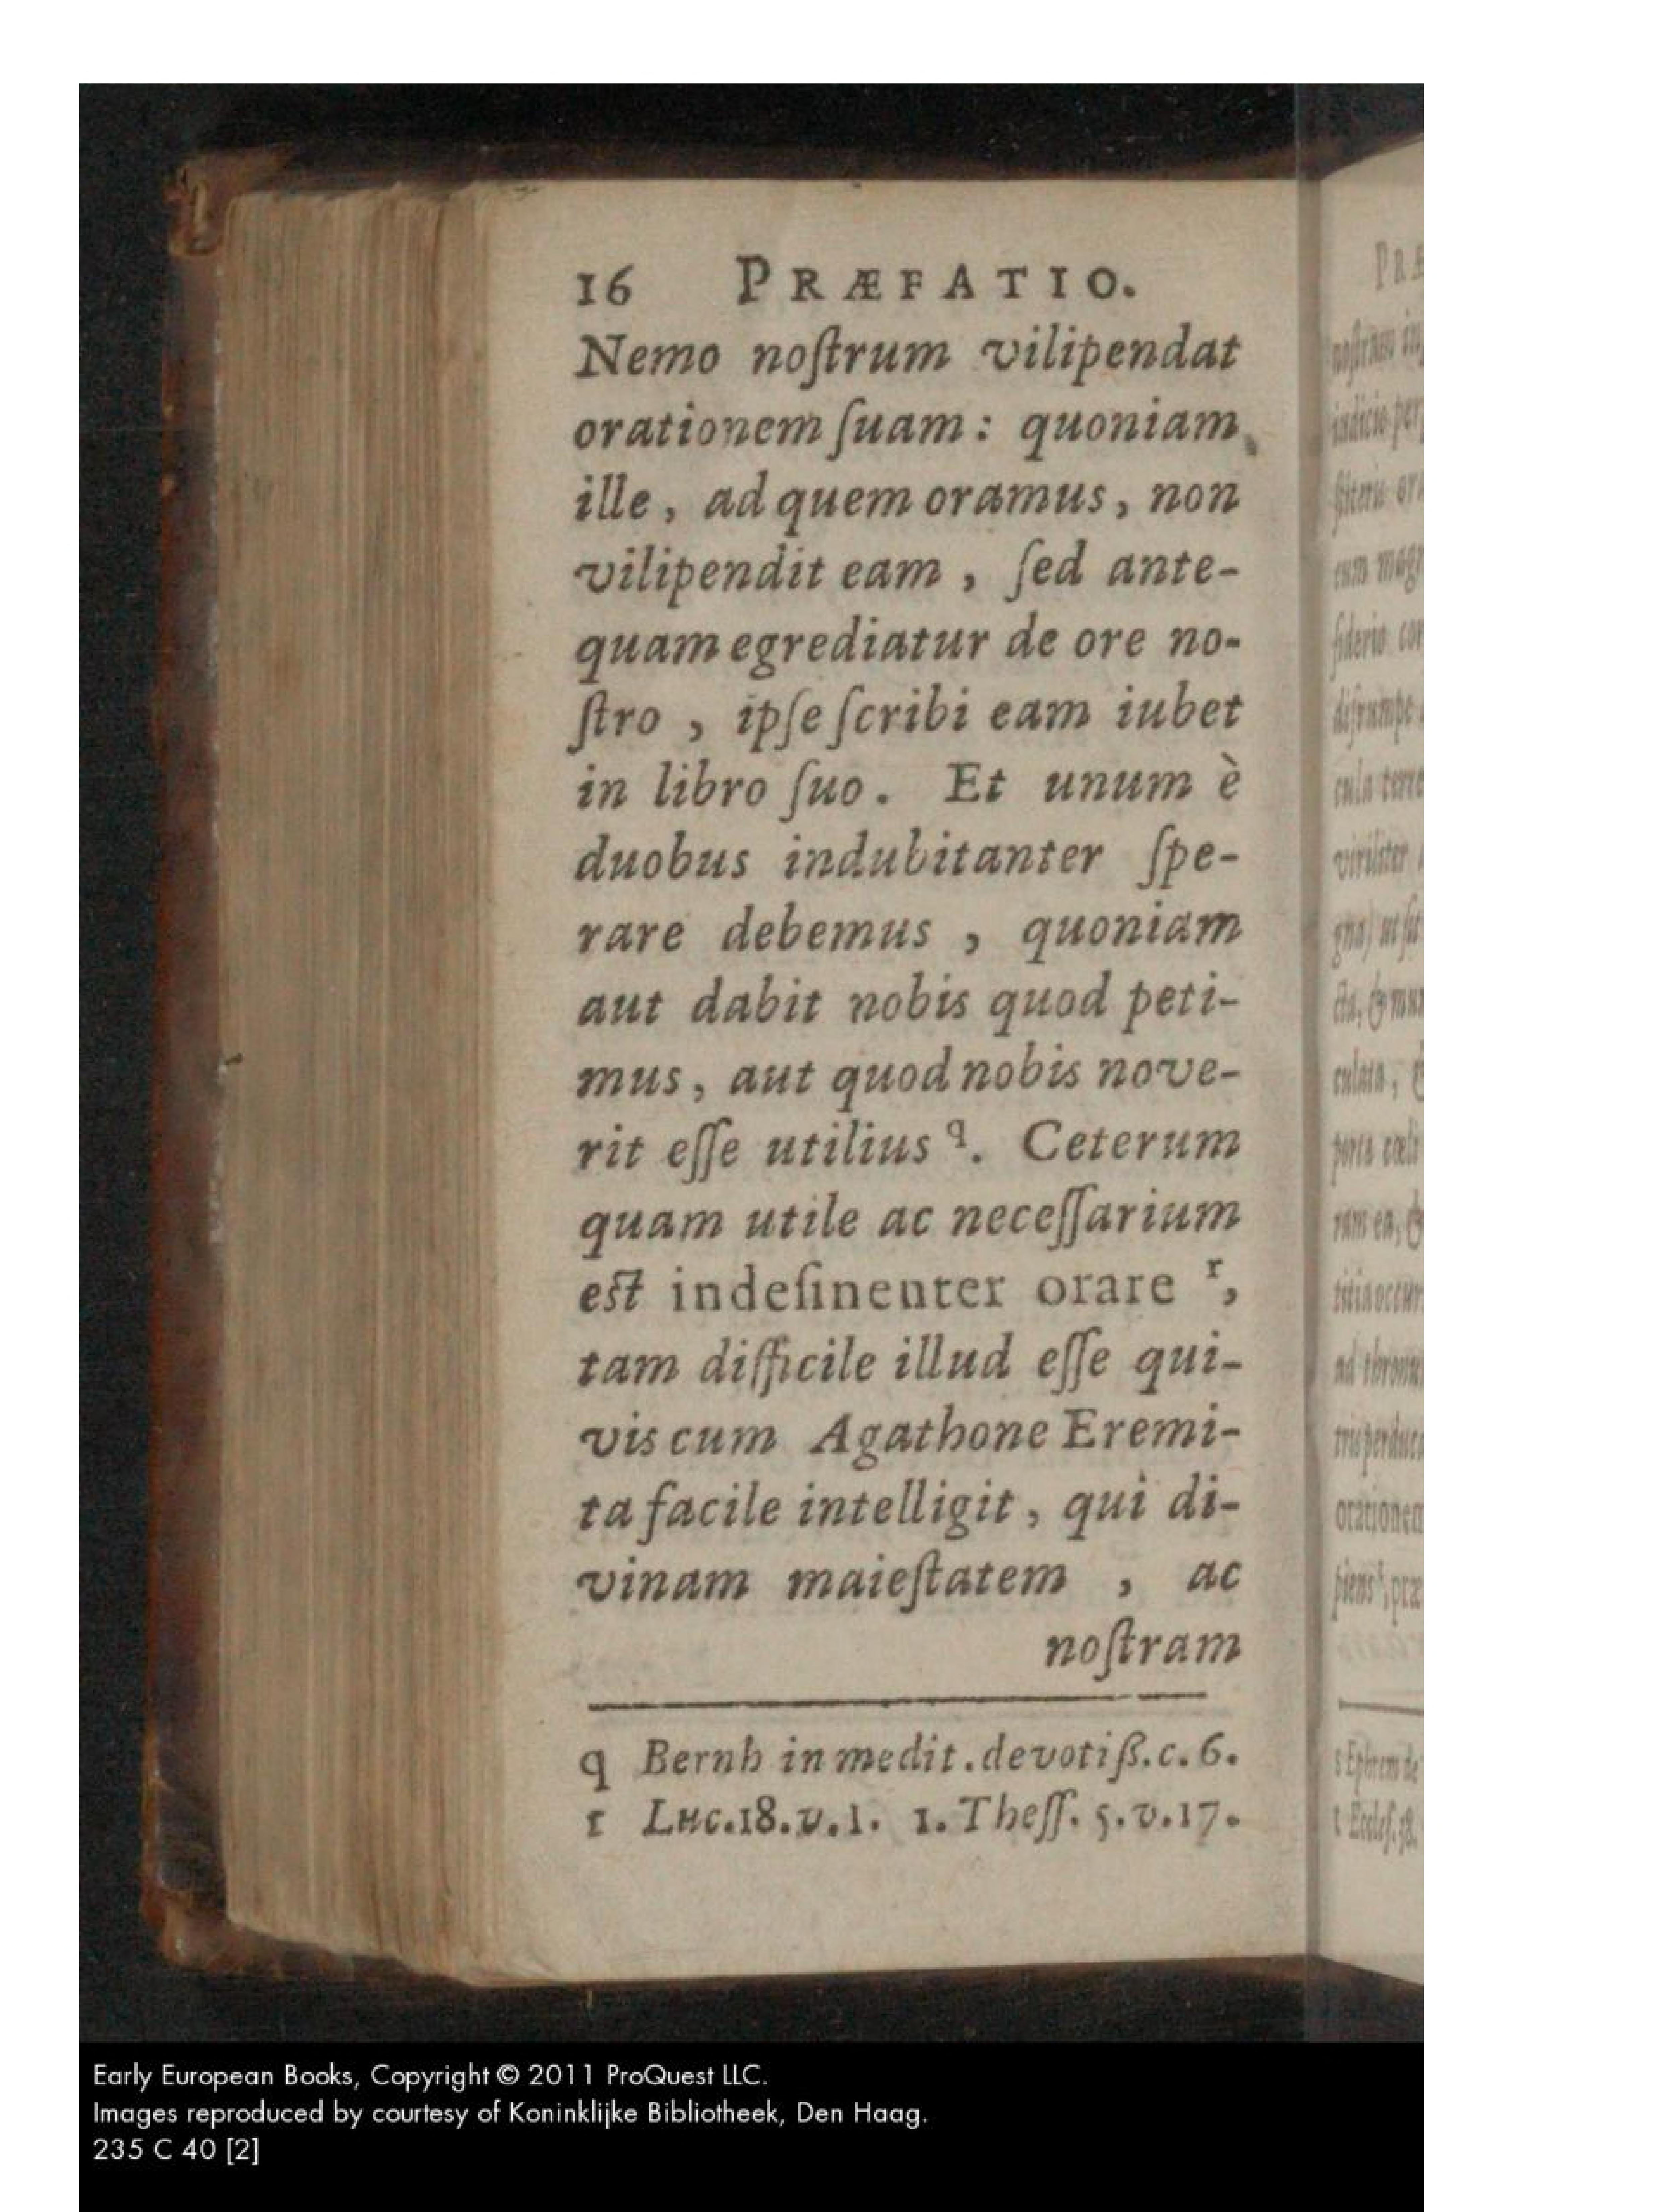 16 PRÆFATIO.
Nemo noſtrum vilipendat
orationem ſuam: quoniam
ille, ad quem oramus, non
vilipendit eam, ſed ante-
quam egrediatur de ore no-
ſtro, ipſe ſcribi eam iubet
in libro ſuo. Et unum è
duobus indubitanter ſpe-
rare debemus, quoniam
aut dabit nobis quod peti-
mus, aut quod nobis nove-
rit eſſe utilius q. Ceterum
quam utile ac neceſſarium
eſt indeſinenter orare r,
tam difficile illud eſſe qui-
vis cum Agathone Eremi-
ta facile intelligit, qui di-
vinam maieſtatem, ac
noſtram
q Bernh in medit. devotiß. c. 6.
r Luc. 18. v. 1. 1. Theſſ. 5. v. 17.
Early European Books, Copyright © 2011 ProQuest LLC.
Images reproduced by courtesy of Koninklijke Bibliotheek, Den Haag.
235 C 40 [2]